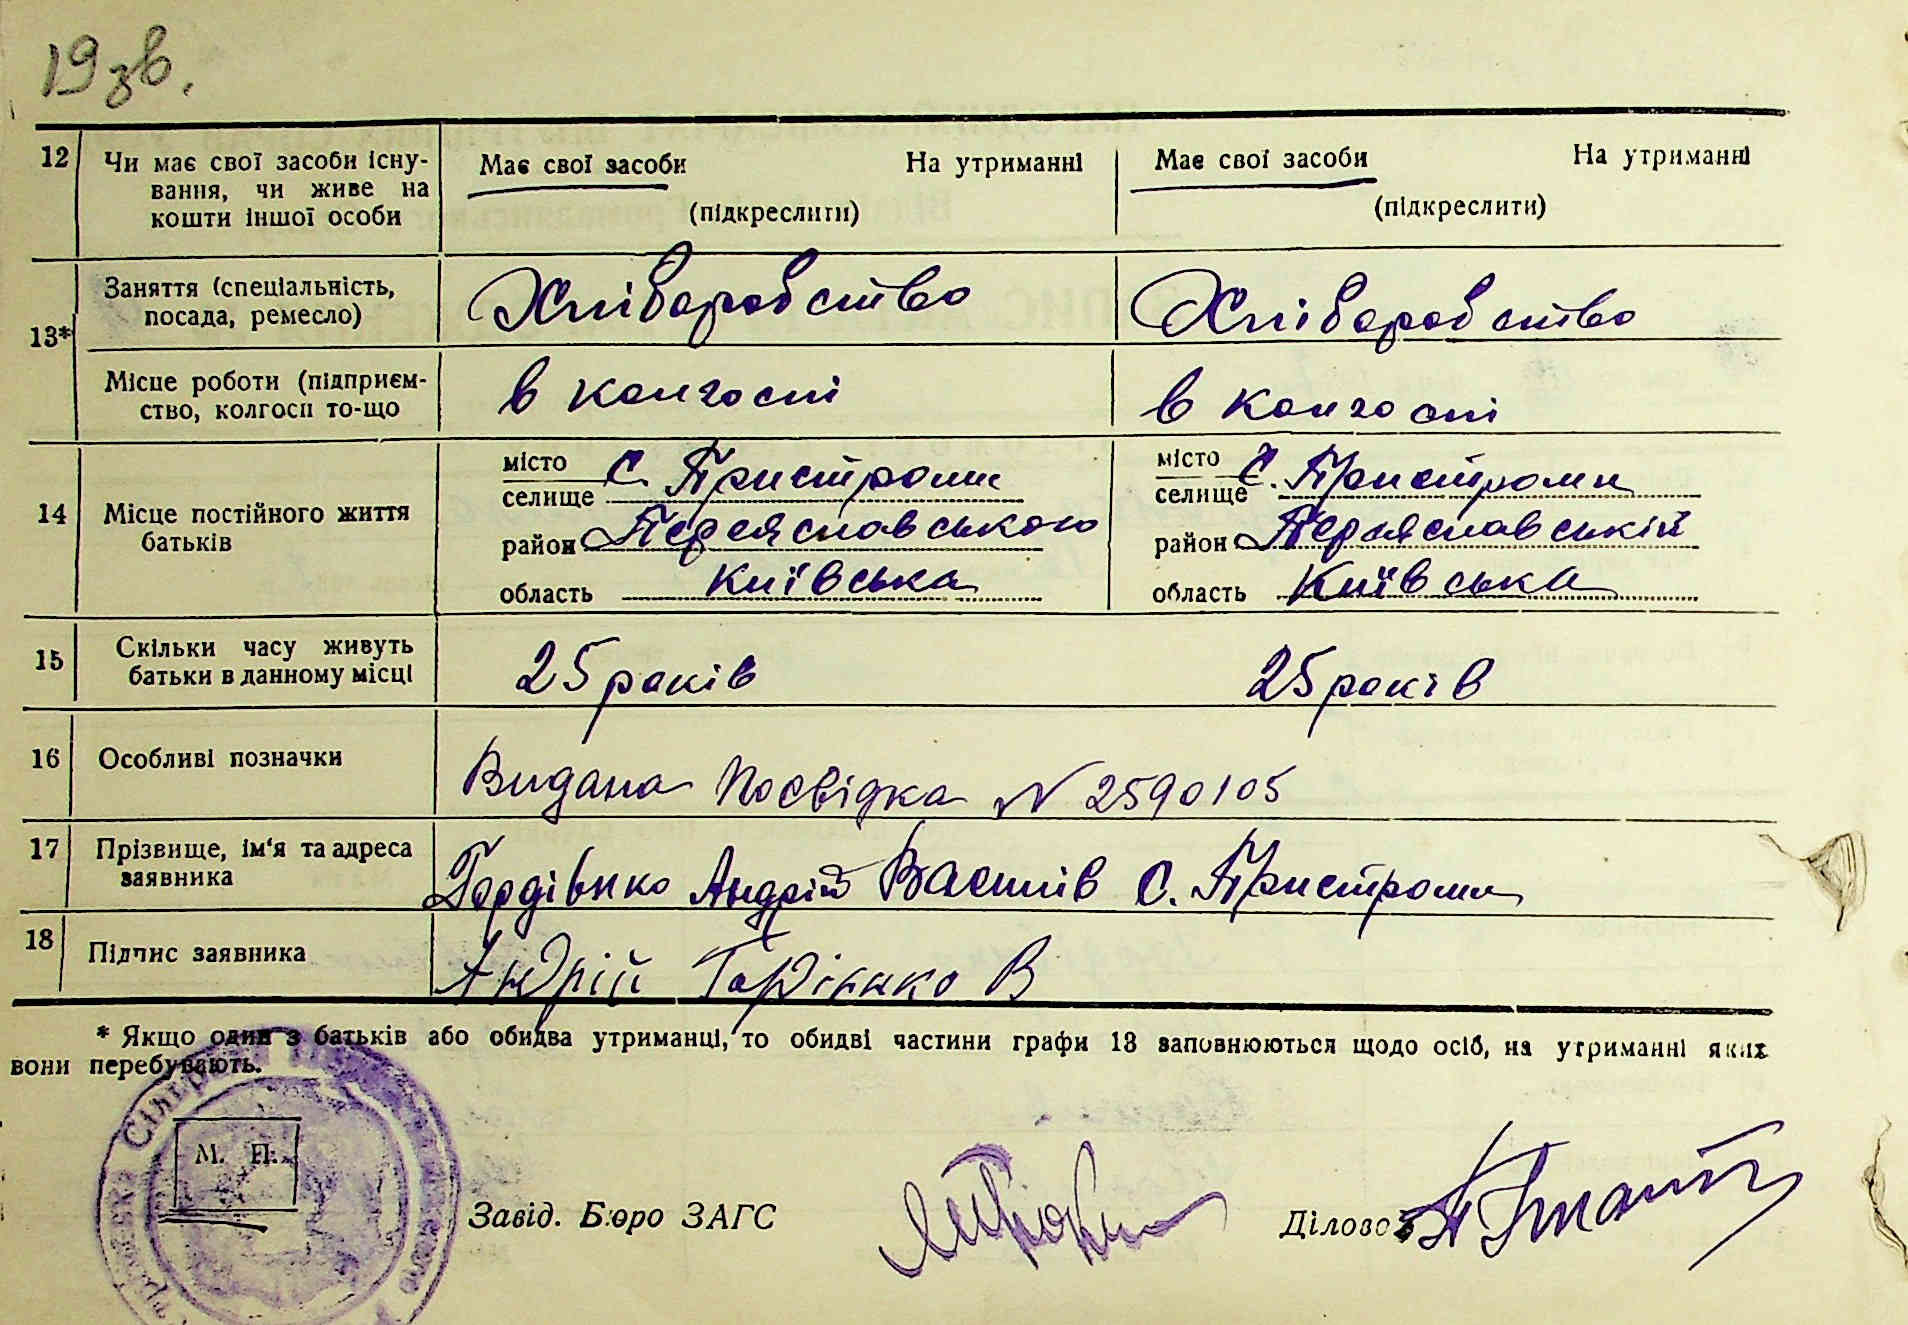 19 зв.
12 Чи має свої засоби існу-
вання, чи живе на
кошти іншої особи
Має свої засоби На утриманні
(підкреслити)
Має свої засоби На утриманні
(підкреслити)
13*
Заняття (спеціальність,
посада, ремесло)
Хліборобство
Хліборобство
Місце роботи (підприєм-
ство, колгосп то-що
в колгоспі
в колгоспі
14 Місце постійного життя
батьків
місто
селище С. Пристроми
район Переяславського
область Київська
місто
селище С. Пристроми
район Переяславській
область Київська
15 Скільки часу живуть
батьки в данному місці
25 років
25 років
16 Особливі позначки
Видана Посвідка N 2590105
17 Прізвище, ім'я та адреса
заявника
Гордієнко Андрій Василів С. Пристроми
18 Підпис заявника
Андрій В
* Якщо один з батьків або обидва утриманці, то обидві частини графи 13 заповнюються щодо осіб, на утриманні яких
вони перебувають.
М. П.
Завід. Бюро ЗАГС
Діловод